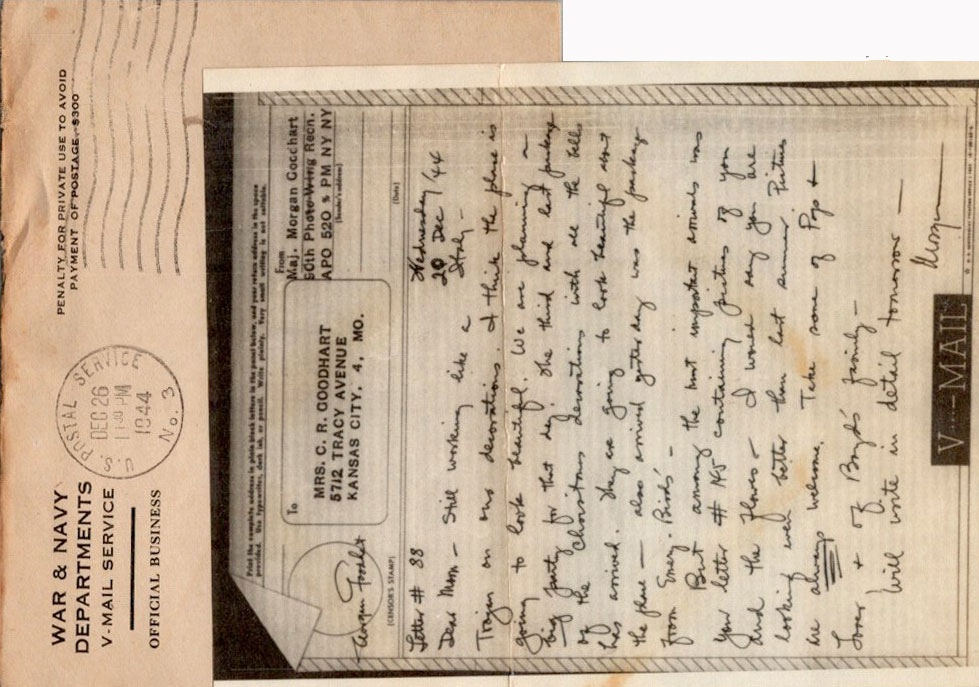 WAR & NAVY
DEPARTMENTS
V-MAIL SERVICE
OFFICIAL BUSINESS
U.S. POSTAL SERVICE
DEC 26
1944
No. 3
PENALTY FOR PRIVATE USE TO AVOID
PAYMENT OF POSTAGE, $300
Print the complete address in plain block letters in the panel below, and your return address in the space
provided. Use typewriter, dark ink, or pencil. Write plainly. Very small writing is not suitable.
To
MRS. C. R. GOODHART
5712 TRACY AVENUE
KANSAS CITY, 4, MO.
From
Maj. Morgan Goodhart
90th Photo Wing Recn.
APO 520 % PM NY NY
(Sender's address)
(Date)
(CENSOR'S STAMP)
Letter # 88
Wednesday
20 Dec '44
Italy -
Dear Mom - Still working like a
Trojan on our decorations. I think the place is
going to look beautiful. We are planning a
big party for that day. The third and last package
of the Christmas decorations with all the bells
has arrived. They are going to look beautiful about
the place - also arrived yesterday was the package
from Emery, Birds' -
But among the most important arrivals was
your letter # 145 containing pictures of you
and the flowers - I would say you are
looking even better than last summer. Pictures
are always welcome. Take some of Pops &
Lover & of Boyd's family -
Will write in detail tomorrow -
V···—MAIL